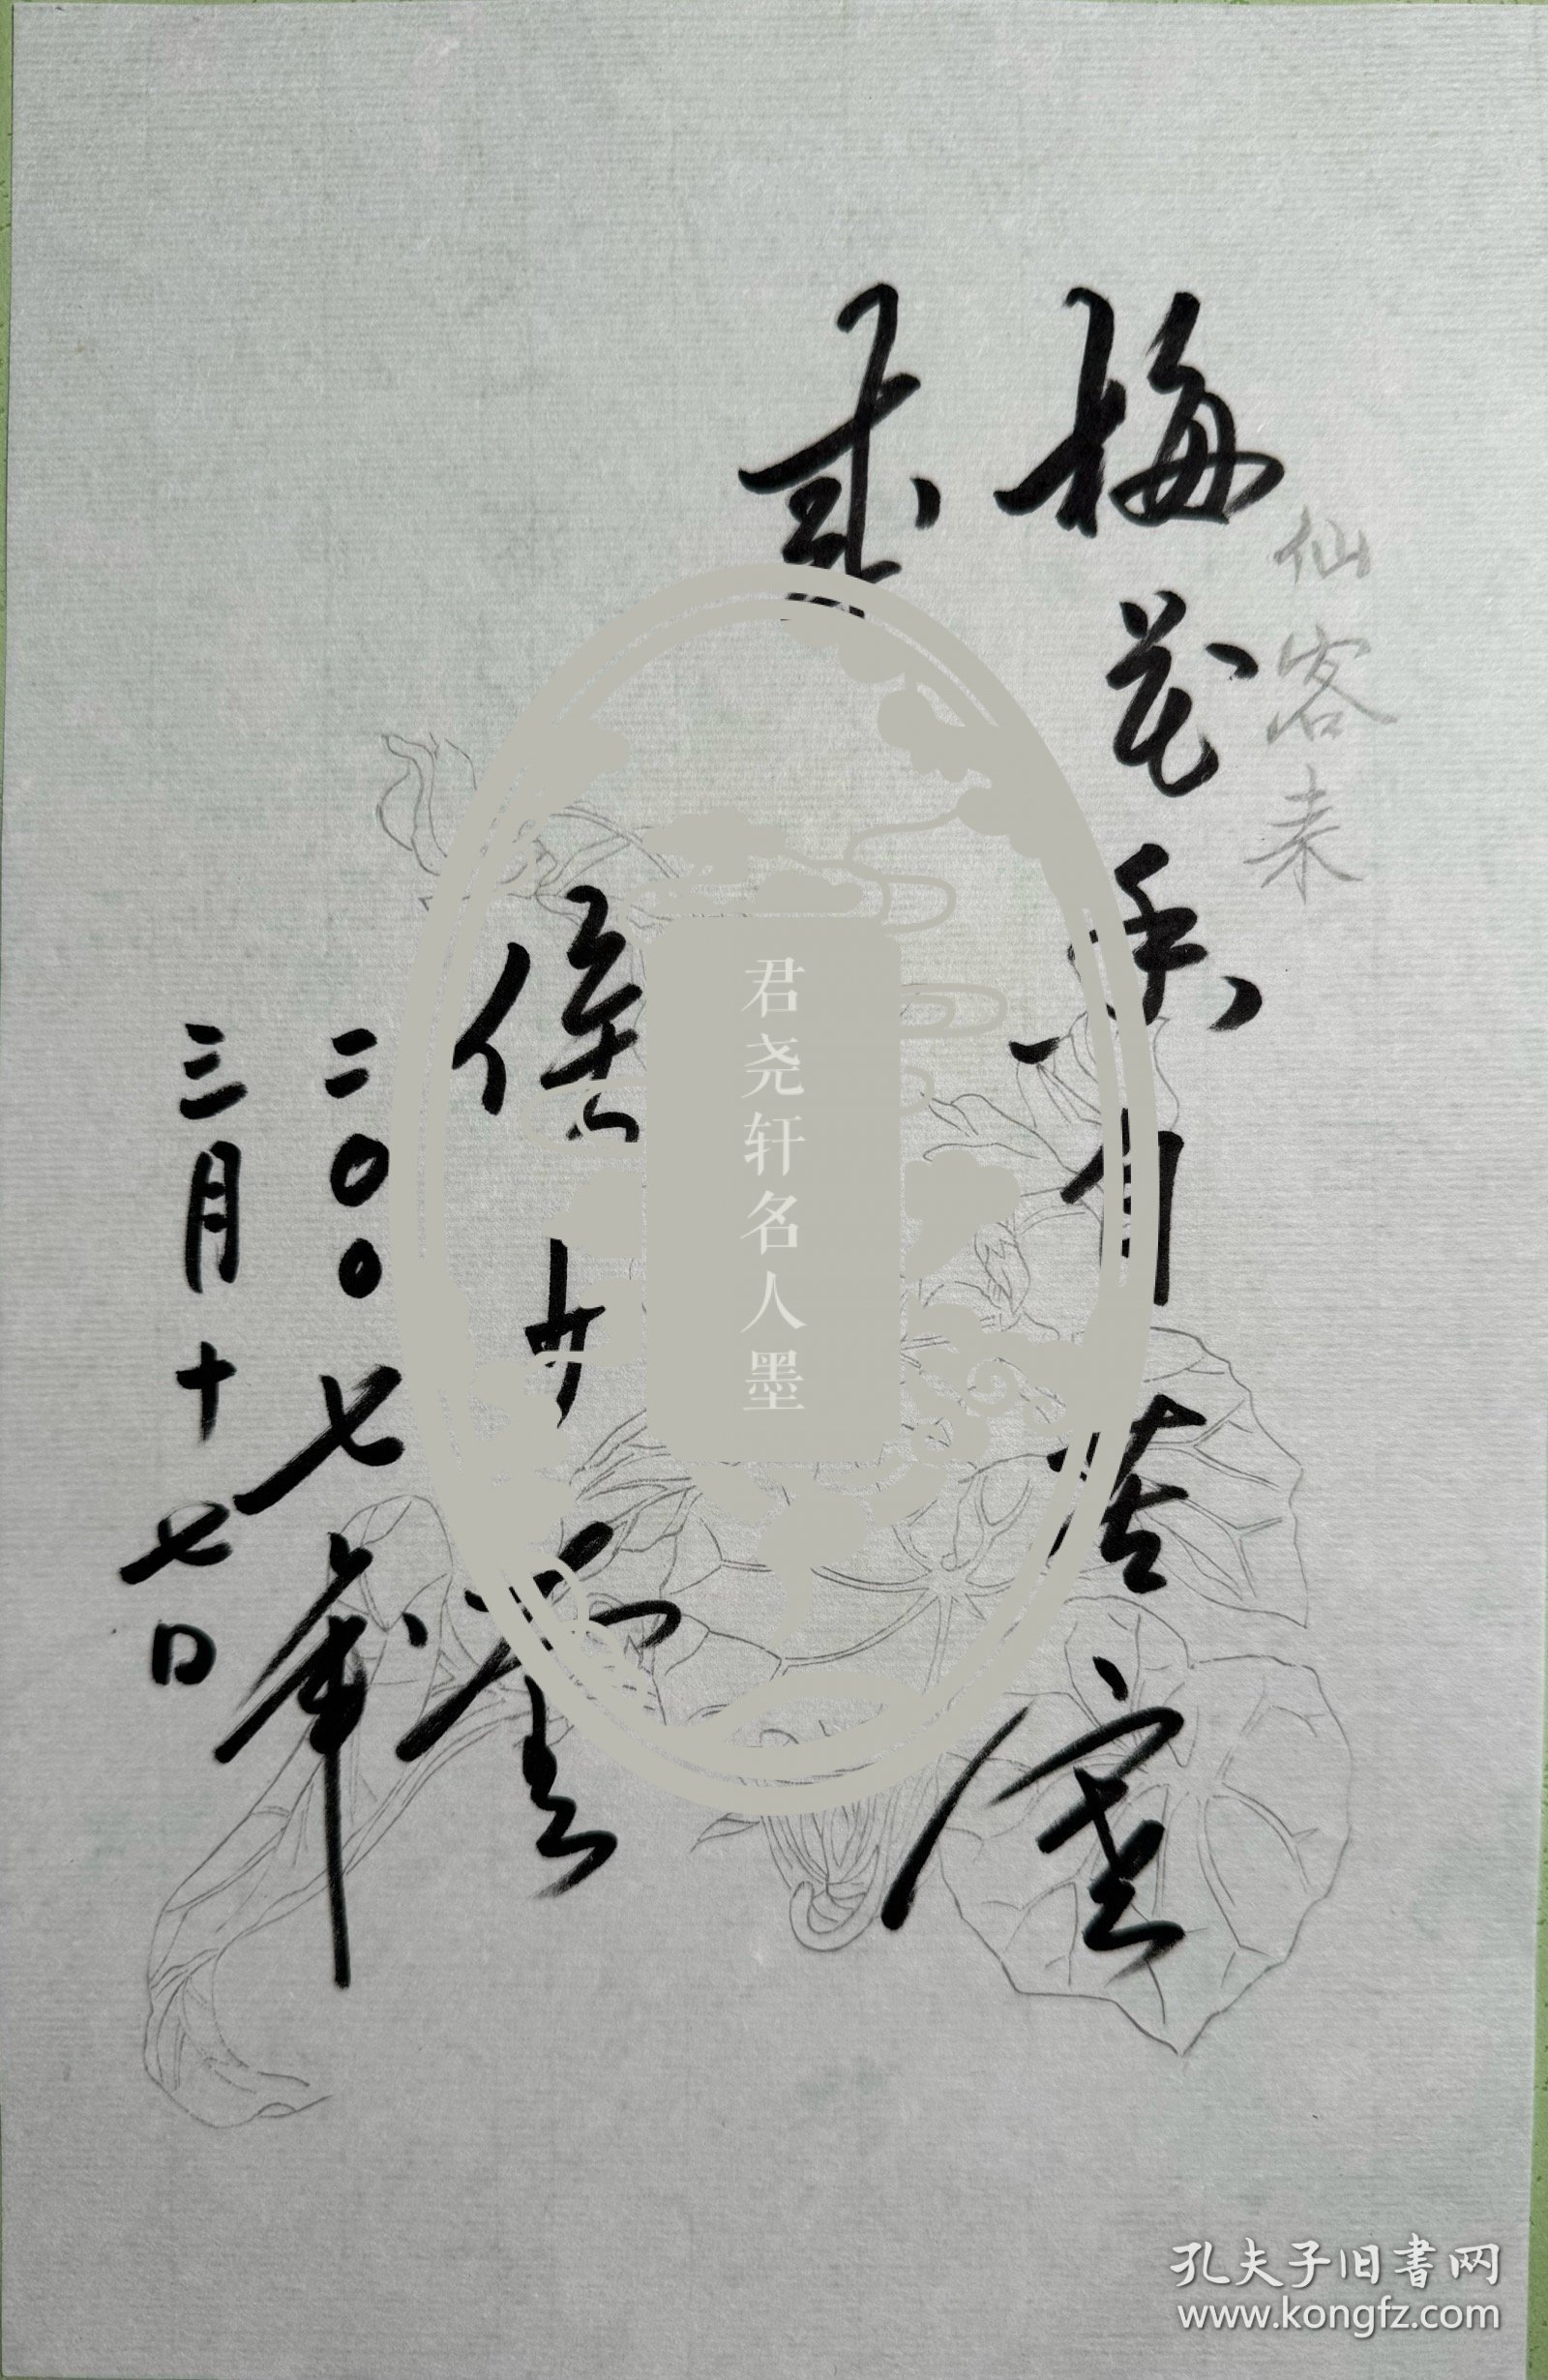 仙客来
梅花香自苦寒
来
侯少奎
二〇〇七年
三月十七日
君尧轩名人墨
孔夫子旧書网
www.kongfz.com